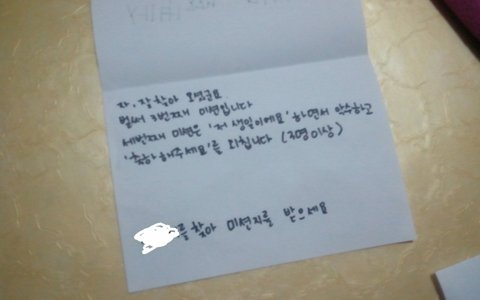 자, 잘 찾아 오셨군요
벌써 3번째 미션입니다
세번째 미션은 '저 생일이에요' 하면서 악수하고
'축하해주세요'를 외칩니다 (7명이상)
를 찾아 미션지를 받으세요